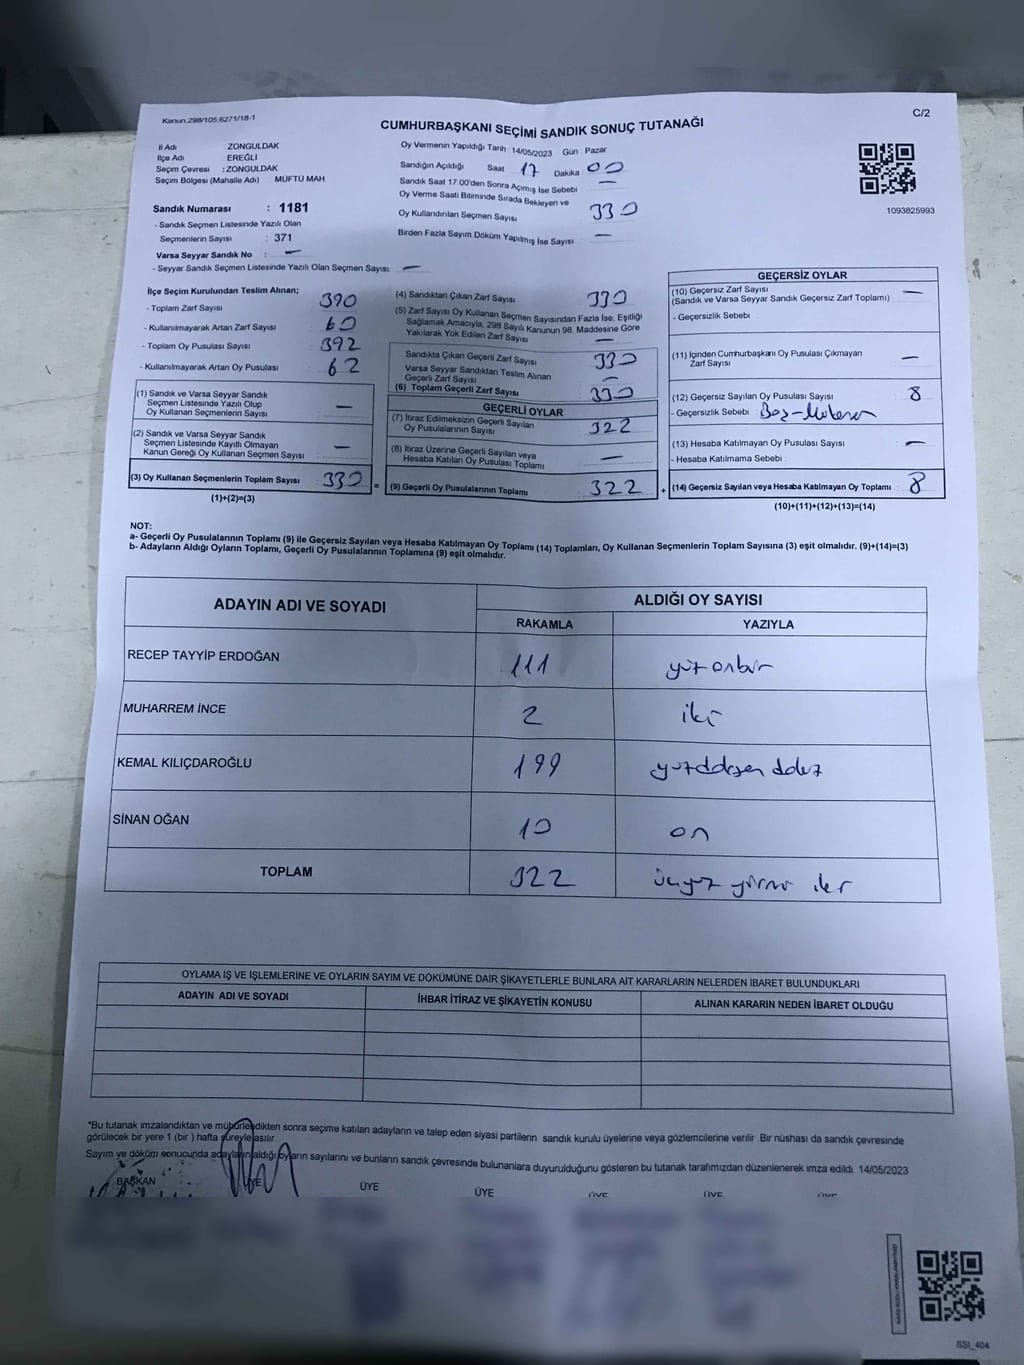 Kanun.298/105,6271/18-1
C/2
CUMHURBAŞKANI SEÇİMİ SANDIK SONUÇ TUTANAĞI
İl Adı ZONGULDAK
İlçe Adı : EREĞLİ
Seçim Çevresi : ZONGULDAK
Seçim Bölgesi (Mahalle Adı) MÜFTÜ MAH
Sandık Numarası : 1181
- Sandık Seçmen Listesinde Yazılı Olan
Seçmenlerin Sayısı : 371
Varsa Seyyar Sandık No : —
- Seyyar Sandık Seçmen Listesinde Yazılı Olan Seçmen Sayısı: —
Oy Vermenin Yapıldığı Tarih 14/05/2023 Gün Pazar
Sandığın Açıldığı Saat 17 Dakika 00
Sandık Saat 17 00'den Sonra Açımış İse Sebebi —
Oy Verme Saati Bitiminde Sırada Bekleyen ve
Oy Kullandırılan Seçmen Sayısı 330
Birden Fazla Sayım Döküm Yapılmış İse Sayısı —
1093825993
İlçe Seçim Kurulundan Teslim Alınan;
- Toplam Zarf Sayısı 390
- Kullanılmayarak Artan Zarf Sayısı 60
- Toplam Oy Pusulası Sayısı 392
- Kullanılmayarak Artan Oy Pusulası 62
(1) Sandık ve Varsa Seyyar Sandık
Seçmen Listesinde Yazılı Olup
Oy Kullanan Seçmenlerin Sayısı —
(2) Sandık ve Varsa Seyyar Sandık
Seçmen Listesinde Kayıtlı Olmayan
Kanun Gereği Oy Kullanan Seçmen Sayısı —
(3) Oy Kullanan Seçmenlerin Toplam Sayısı 330 =
(1)+(2)=(3)
(4) Sandıktan Çıkan Zarf Sayısı 330
(5) Zarf Sayısı Oy Kullanan Seçmen Sayısından Fazla İse, Eşitliği
Sağlamak Amacıyla, 298 Sayılı Kanunun 98. Maddesine Göre
Yakılarak Yok Edilen Zarf Sayısı —
Sandıkta Çıkan Geçerli Zarf Sayısı 330
Varsa Seyyar Sandıktan Teslim Alınan
Geçerli Zarf Sayısı —
(6) Toplam Geçerli Zarf Sayısı 330
GEÇERLİ OYLAR
(7) İtiraz Edilmeksizin Geçerli Sayılan
Oy Pusulalarının Sayısı 322
(8) İtiraz Üzerine Geçerli Sayılan veya
Hesaba Katılan Oy Pusulası Toplamı —
(9) Geçerli Oy Pusulalarının Toplamı 322 +
GEÇERSİZ OYLAR
(10) Geçersiz Zarf Sayısı —
(Sandık ve Varsa Seyyar Sandık Geçersiz Zarf Toplamı)
- Geçersizlik Sebebi :
(11) İçinden Cumhurbaşkanı Oy Pusulası Çıkmayan
Zarf Sayısı —
(12) Geçersiz Sayılan Oy Pusulası Sayısı 8
- Geçersizlik Sebebi Boş-
(13) Hesaba Katılmayan Oy Pusulası Sayısı —
- Hesaba Katılmama Sebebi :
(14) Geçersiz Sayılan veya Hesaba Katılmayan Oy Toplamı 8
(10)+(11)+(12)+(13)=(14)
NOT:
a- Geçerli Oy Pusulalarının Toplamı (9) ile Geçersiz Sayılan veya Hesaba Katılmayan Oy Toplamı (14) Toplamları, Oy Kullanan Seçmenlerin Toplam Sayısına (3) eşit olmalıdır. (9)+(14)=(3)
b- Adayların Aldığı Oyların Toplamı, Geçerli Oy Pusulalarının Toplamına (9) eşit olmalıdır.
ADAYIN ADI VE SOYADI ALDIĞI OY SAYISI
RAKAMLA YAZIYLA
RECEP TAYYİP ERDOĞAN 111 yüz onbir
MUHARREM İNCE 2 iki
KEMAL KILIÇDAROĞLU 199 yüzdoksan dokuz
SİNAN OĞAN 10 on
TOPLAM 322 üçyüz yirmi iki
OYLAMA İŞ VE İŞLEMLERİNE VE OYLARIN SAYIM VE DÖKÜMÜNE DAİR ŞİKAYETLERLE BUNLARA AİT KARARLARIN NELERDEN İBARET BULUNDUKLARI
ADAYIN ADI VE SOYADI İHBAR İTİRAZ VE ŞİKAYETİN KONUSU ALINAN KARARIN NEDEN İBARET OLDUĞU
*Bu tutanak imzalandıktan ve mühürlendikten sonra seçime katılan adayların ve talep eden siyasi partilerin sandık kurulu üyelerine veya gözlemcilerine verilir. Bir nüshası da sandık çevresinde
görülecek bir yere 1 (bir ) hafta süreyle asılır.
Sayım ve döküm sonucunda adayların aldığı oyların sayılarını ve bunların sandık çevresinde bulunanlara duyurulduğunu gösteren bu tutanak tarafımızdan düzenlenerek imza edildi 14/05/2023
BAŞKAN ÜYE ÜYE ÜYE ÜYE ÜYE ÜYE
SSI_404